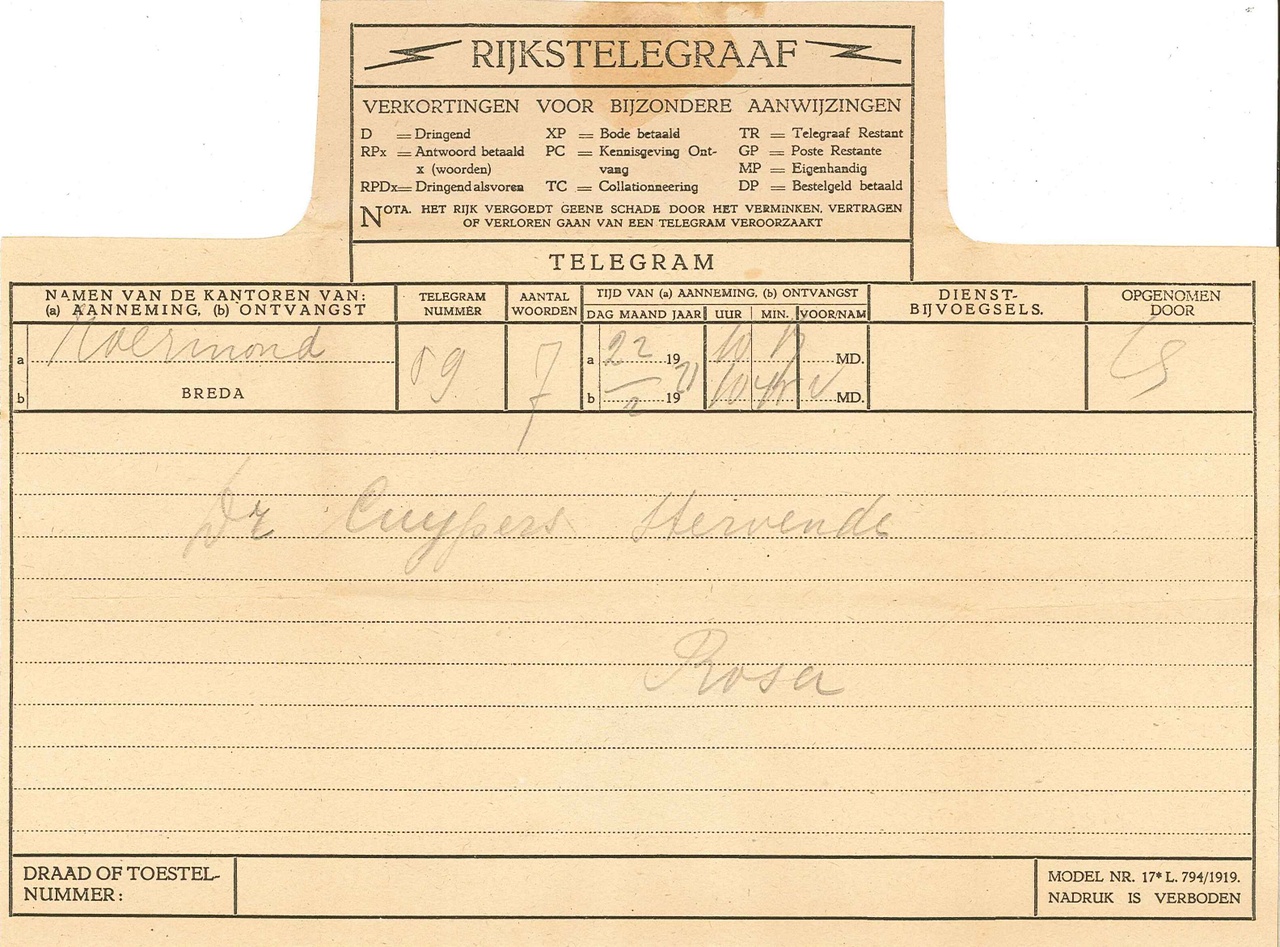 RIJKSTELEGRAAF
VERKORTINGEN VOOR BIJZONDERE AANWIJZINGEN
D = Dringend XP = Bode betaald TR = Telegraaf Restant
RPx = Antwoord betaald PC = Kennisgeving Ont- GP = Poste Restante
x (woorden) vang MP = Eigenhandig
RPDx= Dringend alsvoren TC = Collationneering DP = Bestelgeld betaald
NOTA. HET RIJK VERGOEDT GEENE SCHADE DOOR HET VERMINKEN, VERTRAGEN
OF VERLOREN GAAN VAN EEN TELEGRAM VEROORZAAKT
TELEGRAM
NAMEN VAN DE KANTOREN VAN: TELEGRAM AANTAL TIJD VAN (a) AANNEMING, (b) ONTVANGST DIENST- OPGENOMEN
(a) AANNEMING, (b) ONTVANGST NUMMER WOORDEN DAG MAAND JAAR UUR MIN. VOOR/NAM BIJVOEGSELS. DOOR
a Roermond 59 7 a 22 19 10 MD.
b BREDA b 2 19 21 10 v MD.
Dr Cuypers stervende
Rosa
DRAAD OF TOESTEL- MODEL NR. 17* L. 794/1919.
NUMMER: NADRUK IS VERBODEN